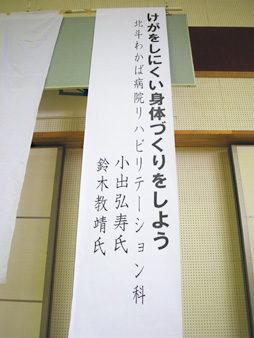 けがをしにくい身体づくりをしよう
北斗わかば病院リハビリテーション科
小出弘寿氏
鈴木教靖氏